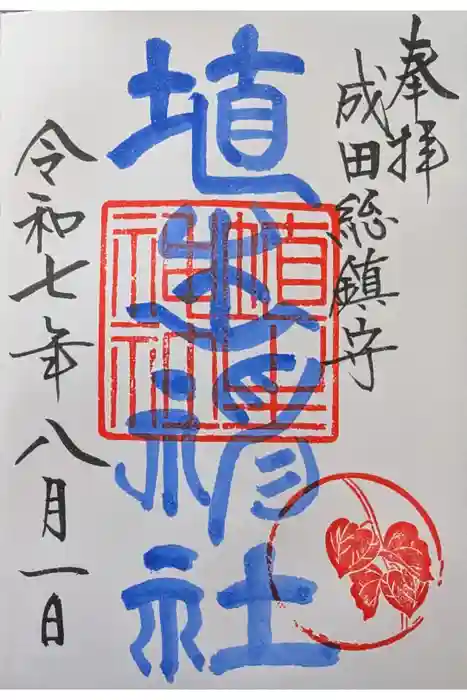 奉拝
成田総鎮守
埴生神社
埴生神社
令和七年八月一日